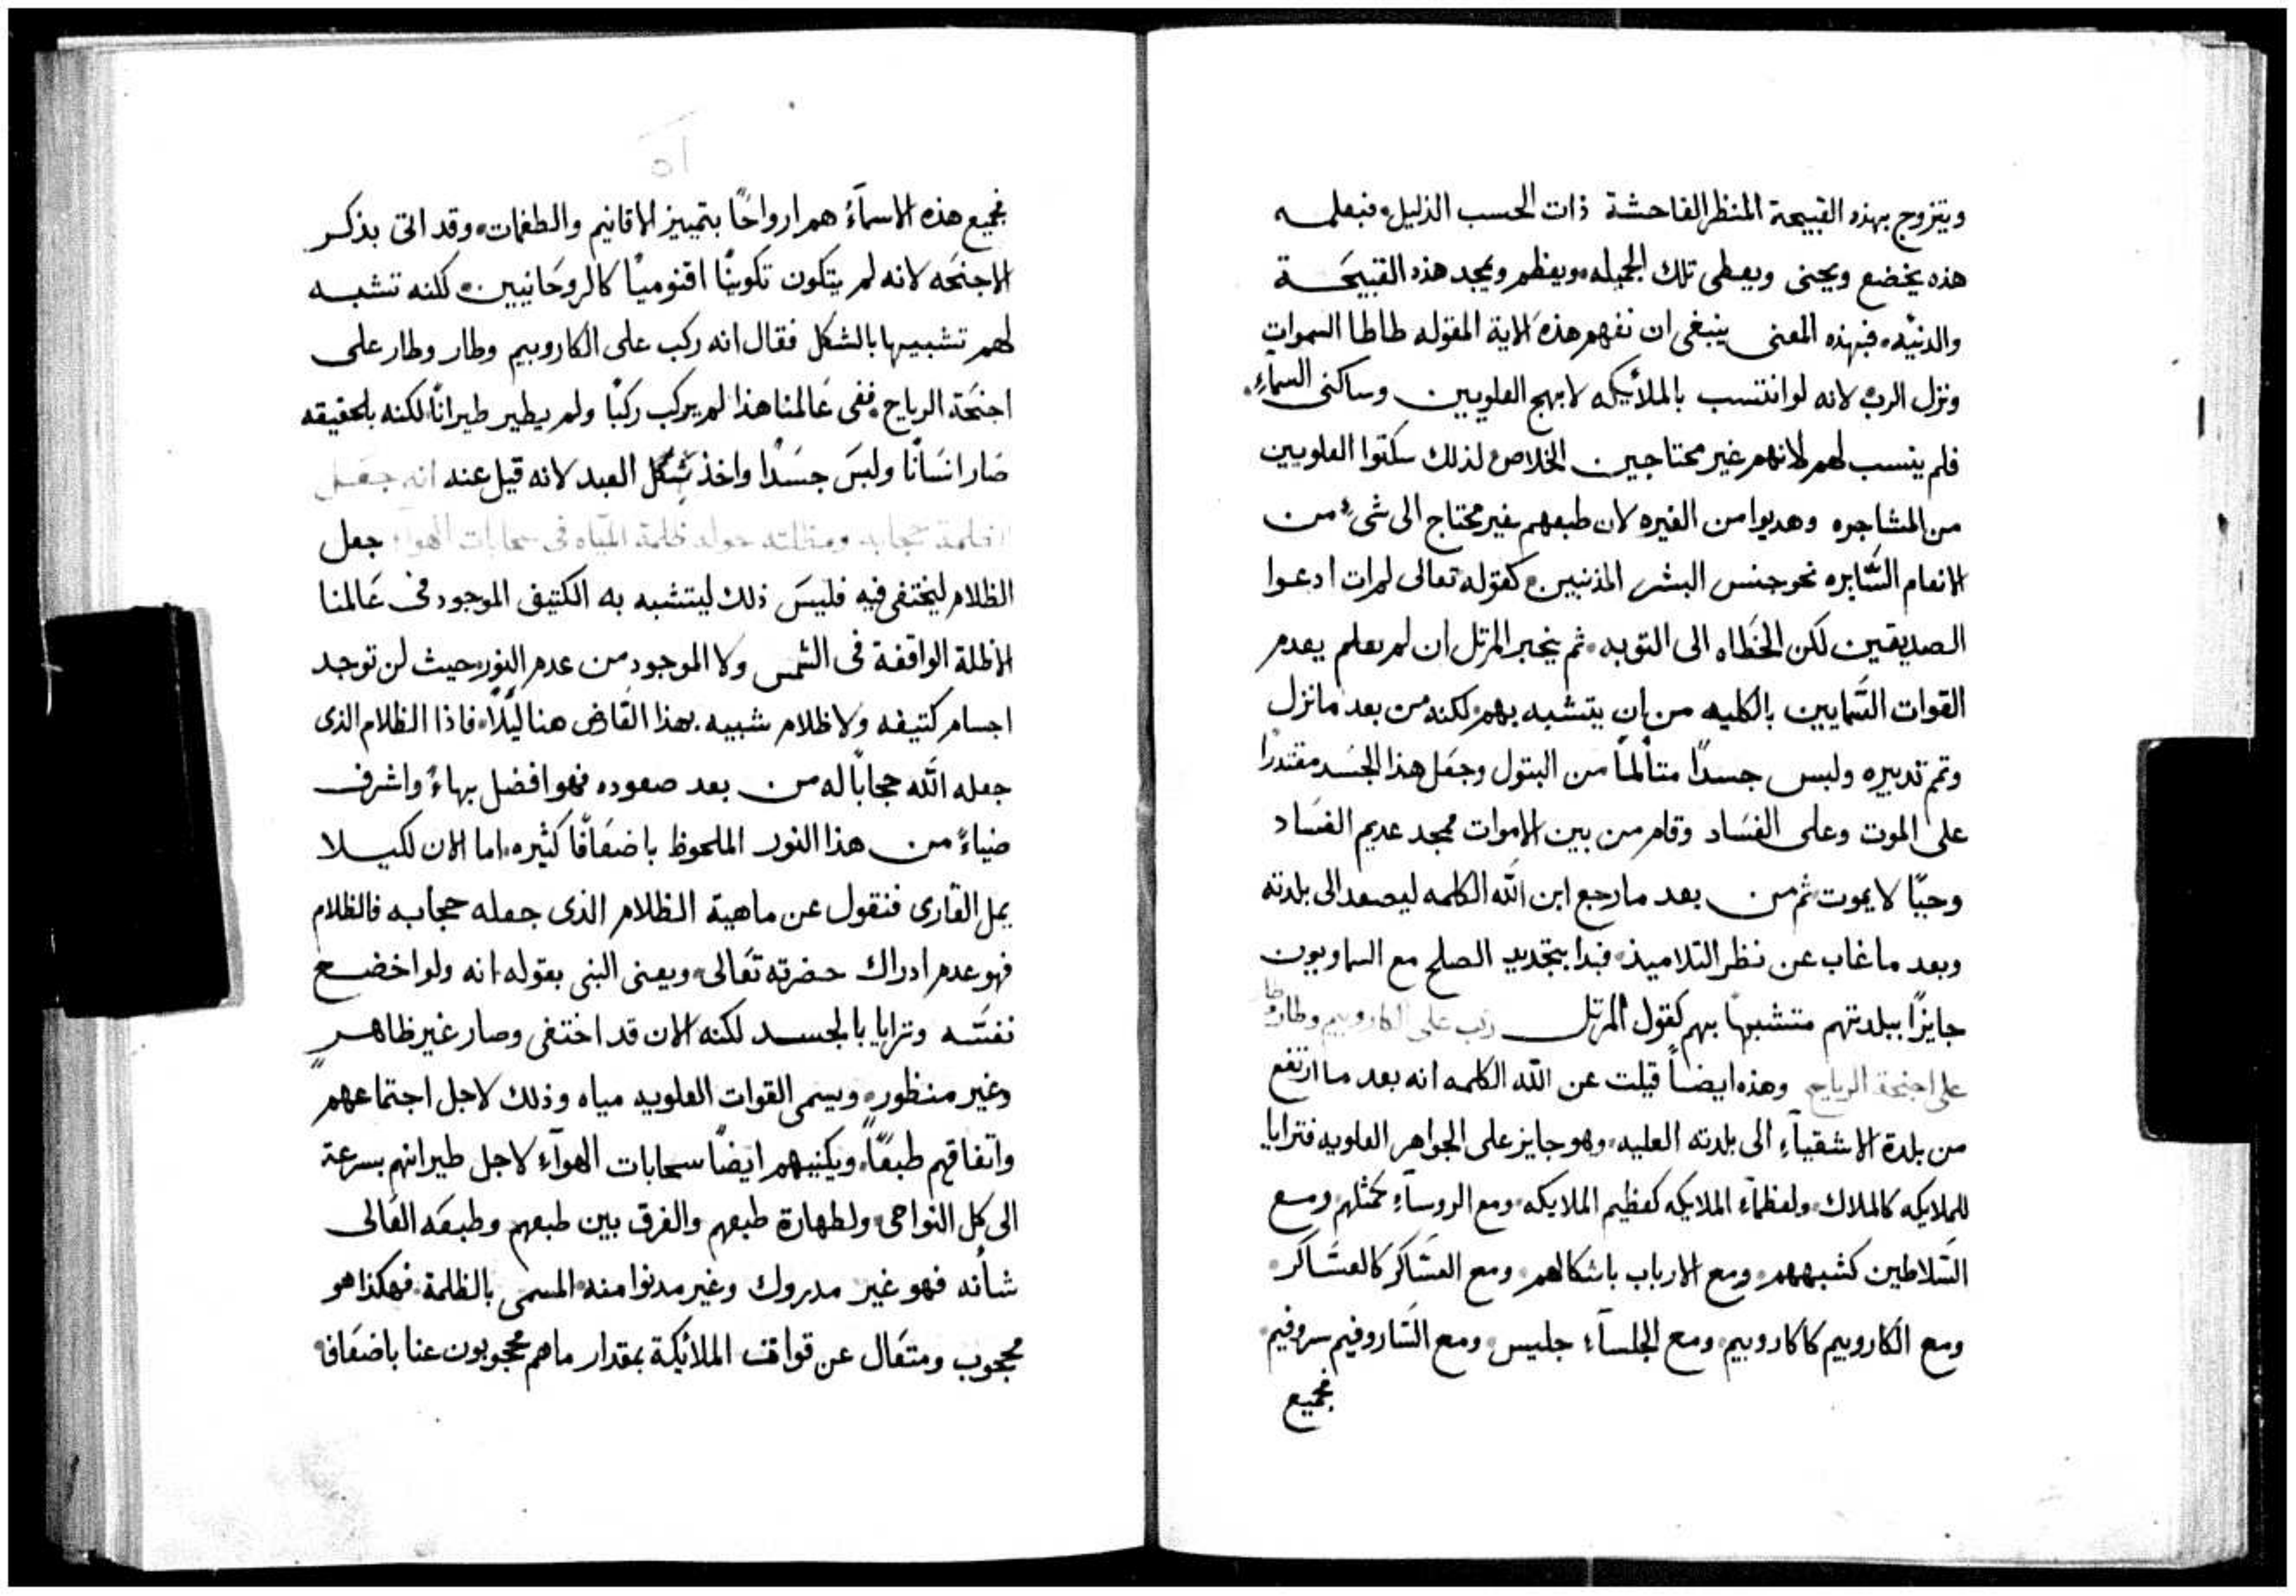 ويتزوج بهذه القبيحة المنظر الفاحشة ذات الحسب الذليل، فبعلمه
هذه يخضع ويحنى ويعطى تلك الجميله، ويعظم ويمجد هذه القبيحَة
والدنيّه، فبهذه المعنى ينبغى ان نفهم هذه الاية المقوله طاطا السموات
ونزل الرب، لانه لو انتسب بالملائيكه لابهج العلويين وساكنى السمآءِ،
فلم ينسب لهم لانهم غير محتاجين الخلاص، لذلك سكتوا العلويين
من المشاجره وهديوا من الغيره لان طبعهم غير محتاج الى شىءٍ من
الانعام السَّايره نحو جنس البشر المذنبين، كقوله تعالى لم ات ادعوا
الصديقين لكن الخَطاه الى التوبه، ثم يخبر المرتل ان لم يعلم يعدم
القوات السَّمايين بالكليه من ان يتشبه بهم، لكنه من بعد ما نزل
وتم تدبيره ولبس جسدًا متألمًا من البتول وجعَل هذا الجسَد مقتدرًا
على الموت وعلى الفسَاد وقام من بين الاموات ممجد عديم الفسَاد
وحيًا لا يموت، ثم من بعد ما رجع ابن اللّه الكلمه ليصعد الى بلدته
وبعد ما غاب عن نظر التلاميذ، فبدا بتجديد الصلح مع السماويون
جايزًا ببلدتهم متشبهًا بهم كقول المرتل ركب على الكاروبيم وطار وطار
على اجنحة الرياح وهذه ايضاً قيلت عن اللّه الكلمه انه بعد ما ارتفع
من بلدة الاشقيآءِ الى بلدته العليه، وهو جايز على الجواهر العلويه فترايا
للملايكه كالملاك، ولعظمآء الملايكه كعظيم الملايكه، ومع الروسآءِ كمثلهم، ومع
السَّلاطين كشبههم، ومع الارباب باشكالهم، ومع العسَّاكر كالعسَّاكر،
ومع الكاروبيم كاكاروبيم، ومع الجلسآءِ جليس، ومع السَّاروفيم سروفيم،
فجميع
٥١
فجميع هذه الاسمآءُ هم ارواحًا بتمييز الاقانيم والطغمات، وقد اتى بذكر
الاجنحَه لانه لم يتكون تكوينًا اقنوميًا كالروحَانيين، لكنه تشبه
لهم تشبيهًا بالشكل فقال انه ركب على الكاروبيم وطار وطار على
اجنحَة الرياح، ففى عَالمنا هذا لم يركب ركبًا ولم يطير طيرانًا، لكنه بالحقيقه
صَار انسَانًا ولبسَ جسَدًا واخذ شِكل العبد لانه قيل عنه انه جعَل
الظلمة حجابه ومظلته حوله ظلمة المياه فى سحابات الهوآءِ جعل
الظلام ليختفى فيه فليسَ ذلك ليتشبه به الكتيف الموجود فى عَالمنا
الاظلة الواقفة فى الشمس ولا الموجود من عدم النور، حيث لن توجد
اجسام كتيفه ولا ظلام شبيه بهذا القارض هنا ليلًا، فاذا الظلام الذى
جعله اللّه حجابًا له من بعد صعوده فهو افضل بهاءً واشرف
ضياءً من هذا النور الملحوظ باضعَافًا كثيره، اما الان لكيلا
يمل القارى فنقول عن ماهية الظلام الذى جعله حجابه فالظلام
فهو عدم ادراك حضرته تعَالى، ويعنى النبى بقوله، انه ولو اخضع
نفسَّه وترايا بالجسد لكنه الان قد اختفى وصار غير ظاهرٍ
وغير منظورٍ، ويسمى القوات العلويه مياه وذلك لاجل اجتماعهم
واتفاقهم طبعًا، ويكنيهم ايضًا سحابات الهوآءِ لاجل طيرانهم بسرعة
الى كل النواحى، ولطهارة طبعهم والفرق بين طبعهم وطبعَه العَالى
شأنه فهو غير مدروك وغير مدنوا منه، المسمى بالظلمة، فهكذا هو
محجوب ومتعَال عن قواة الملائيكة بمقدار ما هم محجوبون عنا باضعَافًا